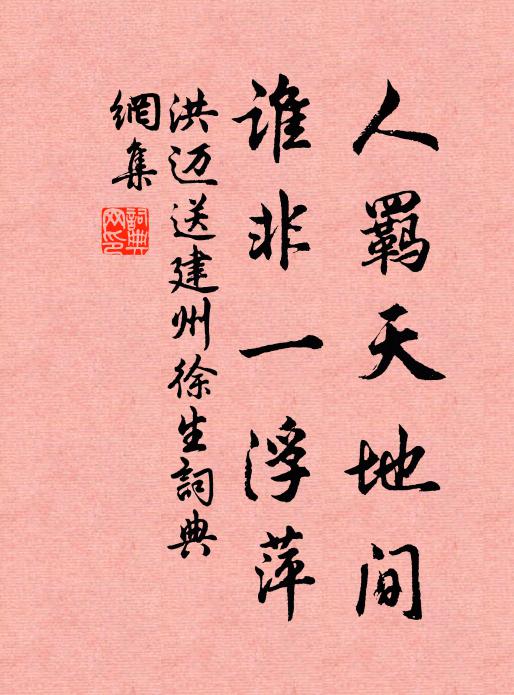 人羁天地间
谁非一浮萍
洪迈送建州徐生詞典
網集
詞典
网印